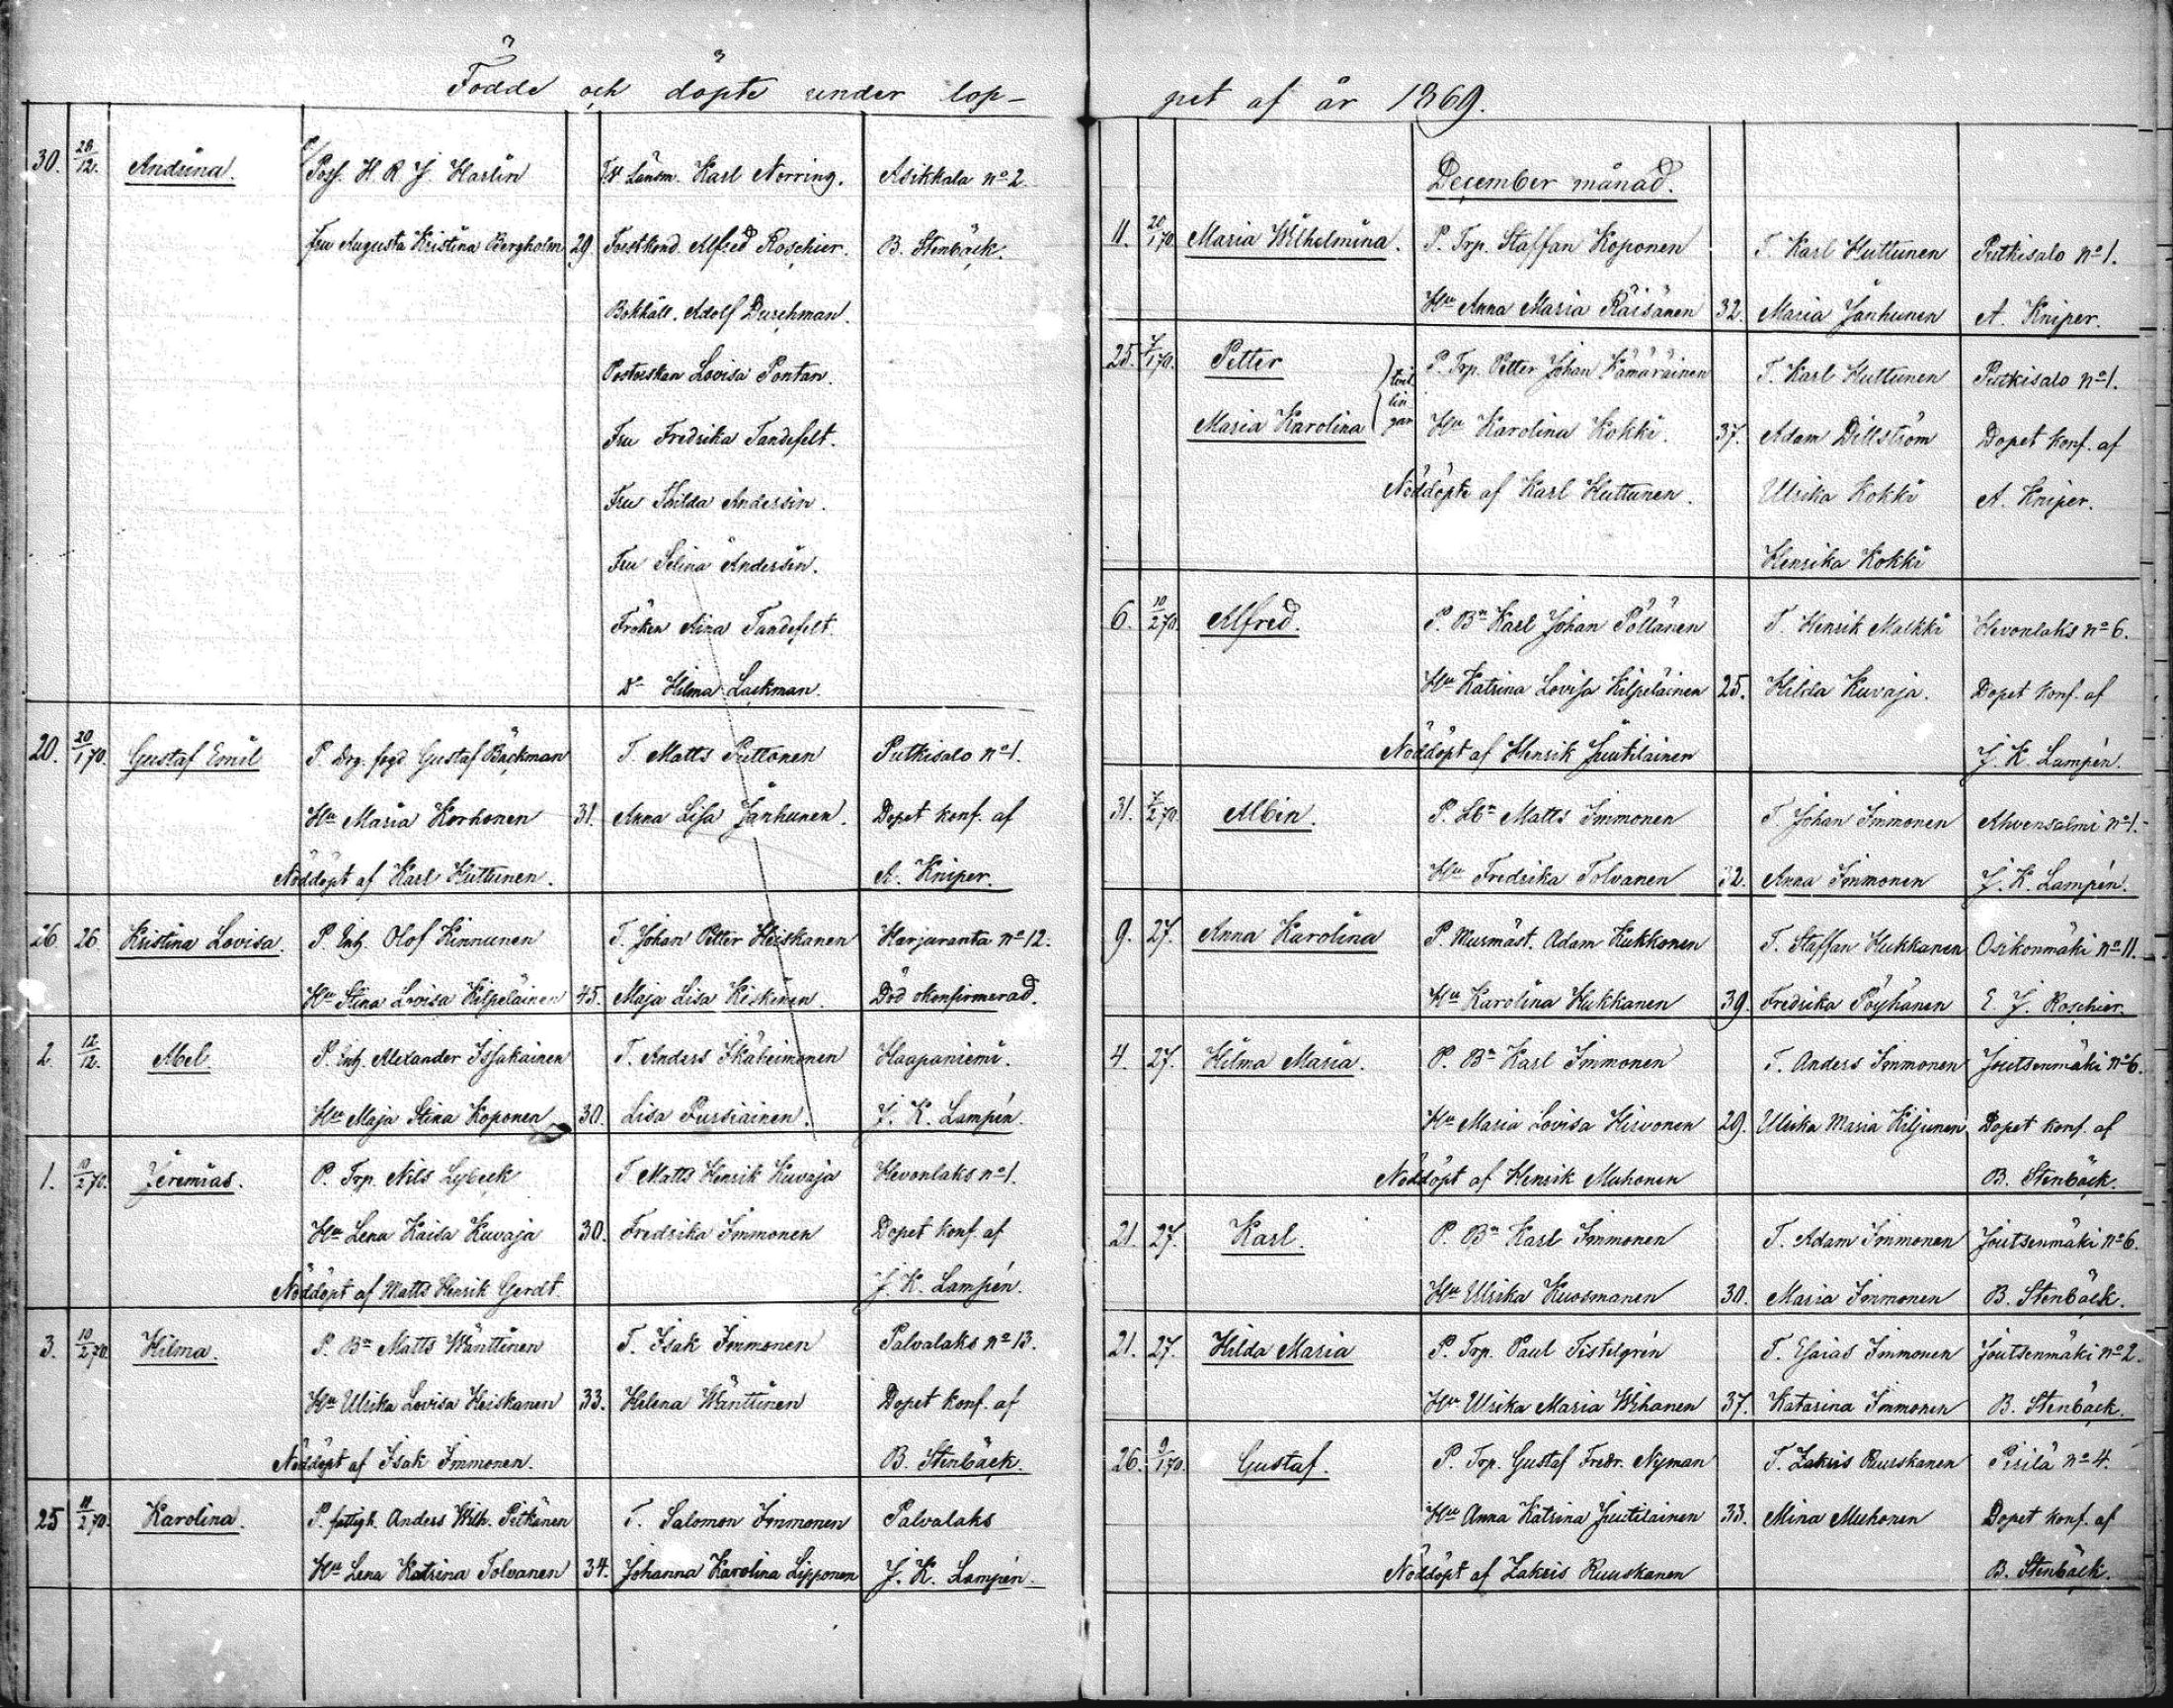 Födde och döpte under lop-
30. 28/12. Andrina. Poss. H. R. J. Harlin Tf Länsm. Karl Norring. Asikkala No 2.
Fru Augusta Kristina Bergholm 29. Forstkond. Alfred Roschier. B. Stenbäck.
Bokhåll. Adolf Durchman.
Lovisa Pontan.
Fru Fredrika Tandefelt.
Fru Thilda Andersin.
Fru Selina Andersin.
Fröken Aina Tandefelt.
Do Hilma Lackman.
20. 20/1 70. Gustaf Emil P. Drg. fogd Gustaf Bäckman T. Matts Puttonen Putkisalo No 1.
Hu Maria Korhonen 31. Anna Lisa Janhunen. Dopet konf. af
Nöddöpt af Karl Huttunen. A. Kniper.
26. 26. Kristina Lovisa. P. Inh. Olof Kinnunen T. Johan Petter Heiskanen Harjuranta No 12.
Hu Stina Lovisa Kilpeläinen 45. Maja Lisa Kiskinen. Död okonfirmerad.
2. 12/12. Abel. P. Inh. Alexander Issakainen T. Anders Ikäheimonen Haapaniemi.
Hu Maja Stina Koponen 30. Lisa Pursiainen. J. K. Lampén.
1. 10/2 70. Jeremias. P. Trp. Nils Lybeck T Matts Henrik Kuvaja Hevonlaks No 1.
Hu Lena Kaisa Kuvaja 30. Fredrika Immonen Dopet konf. af
Nöddöpt af Matts Henrik Gerdt. J. K. Lampén.
3. 10/2 70. Hilma. P. Bn Matts Wänttinen T. Isak Immonen Palvalaks No 13.
Hu Ulrika Lovisa Heiskanen 33. Helena Wänttinen Dopet konf. af
Nöddöpt af Isak Immonen. B. Stenbäck.
25 11/2 70. Karolina. P. fattigh. Anders Wilh. Pitkänen T. Salomon Immonen Palvalaks
Hu Lena Katrina Tolvanen 34. Johanna Karolina Lipponen J. K. Lampén.
pet af år 1869.
December månad.
11. 20/1 70. Maria Wilhelmina. P. Trp. Staffan Koponen T. Karl Huttunen Putkisalo No 1.
Hu Anna Maria Räisänen 32. Maria Janhunen A. Kniper.
25. 7/1 70. Petter P. Trp. Petter Johan Kämäräinen T. Karl Huttunen Putkisalo No 1.
tvil
lin
gar
Maria Karolina Hu Karolina Kokki. 37. Adam Dillström Dopet konf. af
Nöddöpte af Karl Huttunen. Ulrika Kokki A. Kniper.
Henrika Kokki
6. 10/2 70. Alfred. P. Bn Karl Johan Pöllänen T. Henrik Malkki Hevonlaks No 6.
Hu Katrina Lovisa Kilpeläinen 25. Hilda Kuvaja. Dopet konf. af
Nöddöpt af Henrik Juutilainen J. K. Lampén.
31. 7/2 70. Albin. P. Matts Immonen T Johan Immonen Ahvensalmi No 1.
Hu Fredrika Tolvanen 32. Anna Immonen J. K. Lampén.
9. 27. Anna Karolina P. Murmäst. Adam Kukkonen T. Staffan Hukkanen Osikonmäki No 11.
Hu Karolina Hukkanen 39. Fredrika Pöyhänen E. J. Roschier.
4. 27. Hilma Maria. P. Bn Karl Immonen T. Anders Immonen Joutsenmäki No 6.
Hu Maria Lovisa Hirvonen 29. Ulrika Maria Kiljunen Dopet konf. af
Nöddöpt af Henrik Muhonen B. Stenbäck.
21. 27. Karl. P. Bn Karl Immonen T. Adam Immonen Joutsenmäki No 6.
Hu Ulrika Kuosmanen 30. Maria Immonen B. Stenbäck.
21. 27. Hilda Maria P. Trp. Paul Tistelgrén T. Esaias Immonen Joutsenmäki No 2.
Hu Ulrika Maria Wihanen 37. Katarina Immonen B. Stenbäck.
26. 9/1 70. Gustaf. P. Trp. Gustaf Fredr. Nyman T. Zakris Ruuskanen Pirilä No 4.
Hu Anna Katrina Juutilainen 33. Mina Muhonen Dopet konf. af
Nöddöpt af Zakris Ruuskanen B. Stenbäck.